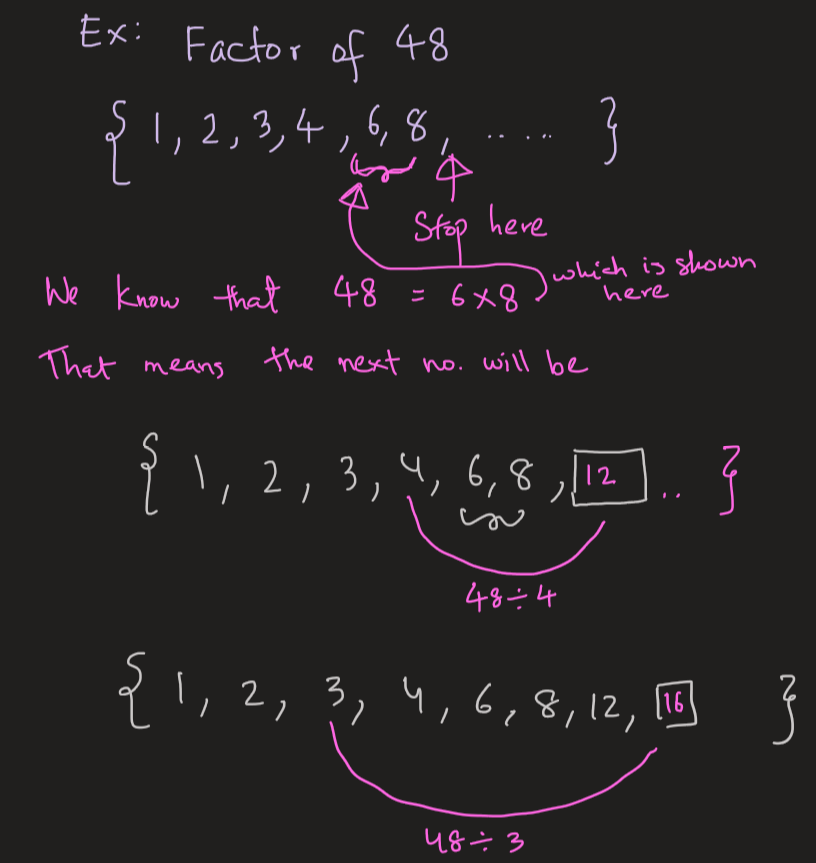 Ex: Factor of 48
{ 1, 2, 3, 4, 6, 8, ..... }
Stop here
We know that 48 = 6 x 8 which is shown here
That means the next no. will be
{ 1, 2, 3, 4, 6, 8, 12 .. }
48 ÷ 4
{ 1, 2, 3, 4, 6, 8, 12, 16 }
48 ÷ 3